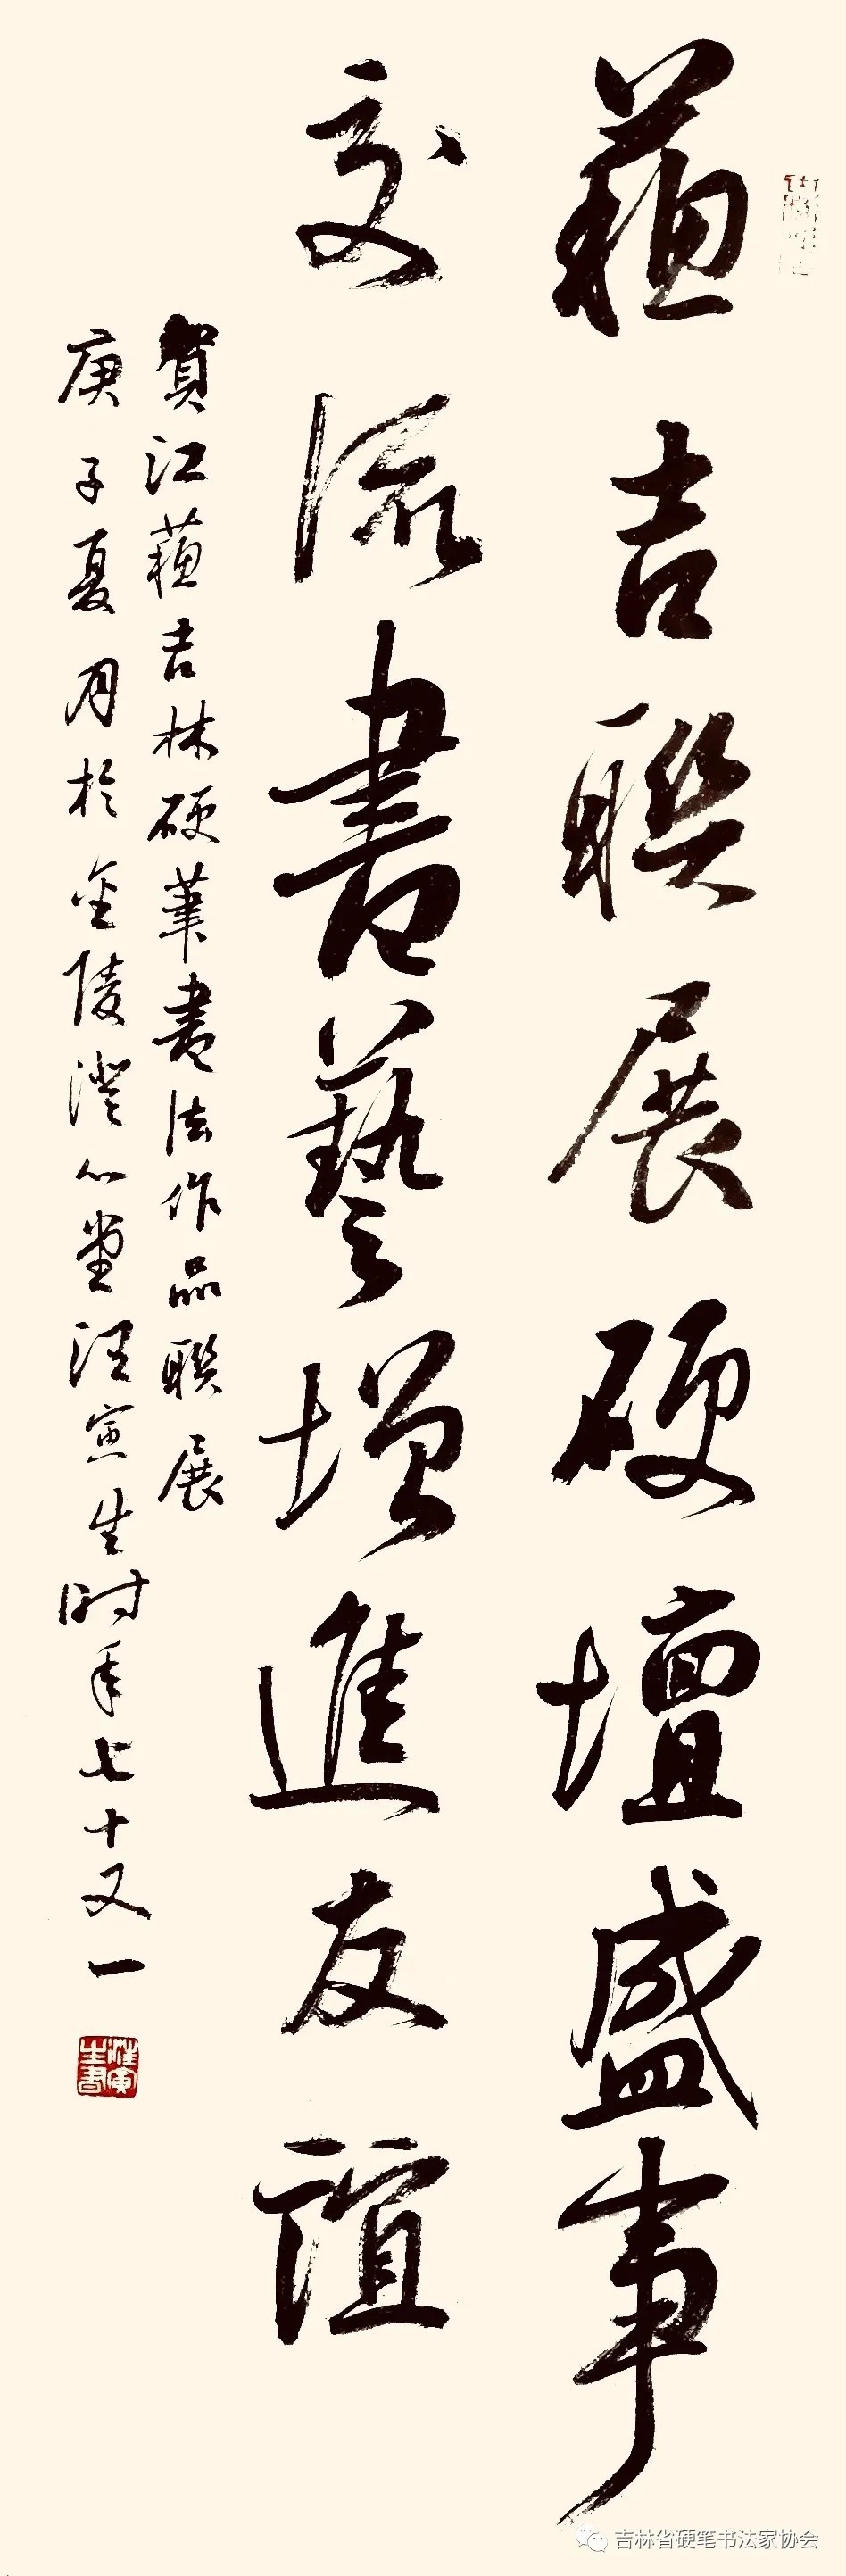 蘓吉聯展硬壇盛事
交流書藝增進友誼
賀江蘓吉林硬筆書法作品聯展
庚子夏月於金陵澄心堂汪寅生时年七十又一
汪寅生書
吉林省硬笔书法家协会